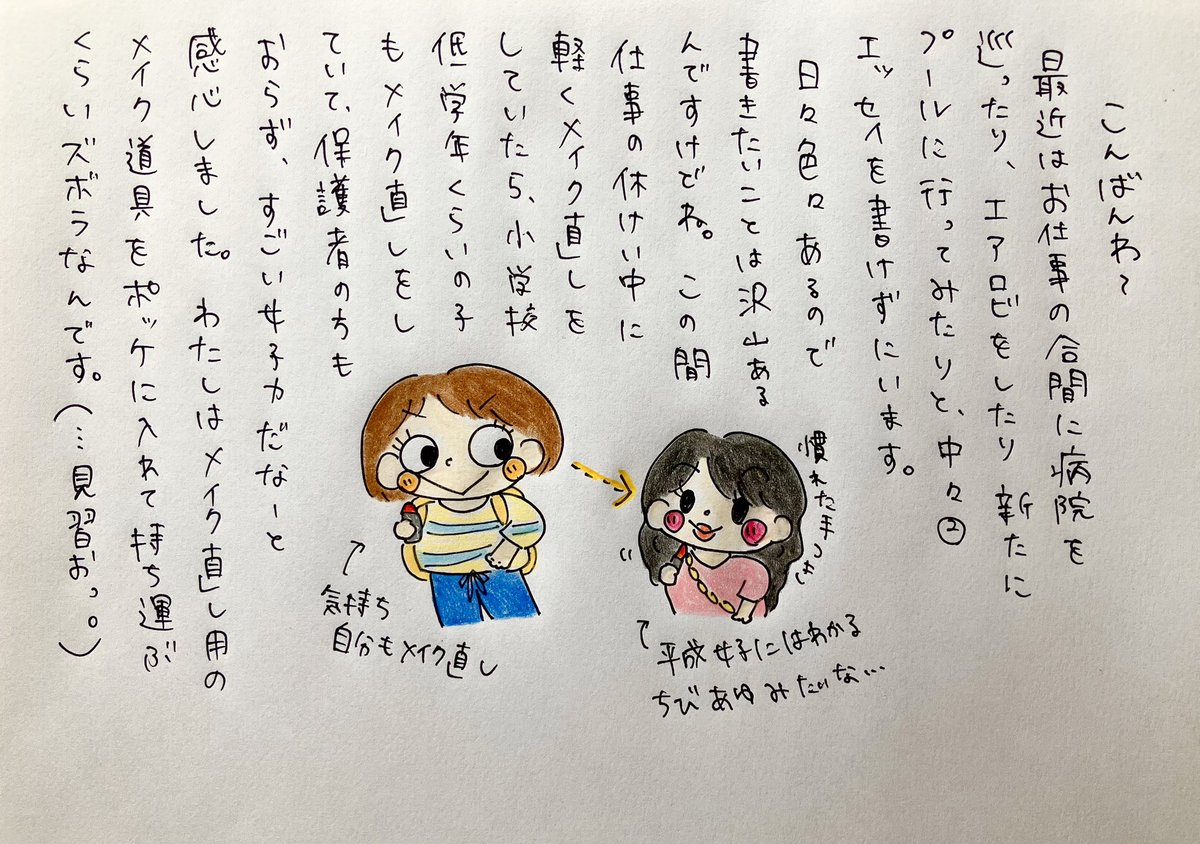 こんばんわ~
最近はお仕事の合間に病院を
巡ったり、エアロビをしたり新たに
プールに行ってみたりと、中々②
エッセイを書けずにいます。
日々色々あるので
書きたいことは沢山ある
んですけどね。この間
仕事の休けい中に
軽くメイク直しを
していたら、小学校
低学年くらいの子
もメイク直しをし
ていて、保護者の方も
おらず、すごい女子力だなーと
感心しました。わたしはメイク直し用の
メイク道具をポッケに入れて持ち運ぶ
くらいズボラなんです。(…見習お。。)
慣れた手つき
↑
気持ち
自分もメイク直し
↑
平成女子にはわかる
ちびあゆみたいな…